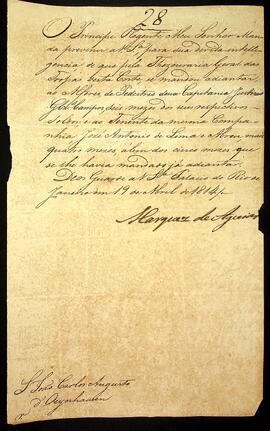 28
O Principe Regente Meu Senhor Man
da prevenir a VS.ª para sua devida intelli
gencia de que pela Thezouraria Geral das
Tropas desta Corte se mandou adiantar
ao Alferes de Pedestres dessa Capitania
Campos seis mezes dos seus respectivos
Soldos, e ao Tenente da mesma Compa
nhia José Antonio de Lima e Abreu mais
quatro mezes, alem dos cinco mezes que
se lhe havia mandado já adiantar.
Deos Guarde a VS.ª Palacio do Rio de
Janeiro em 19 de Abril de 1814
Marquez de Aguiar
Sr. João Carlos Augusto
d'Oeynhausen